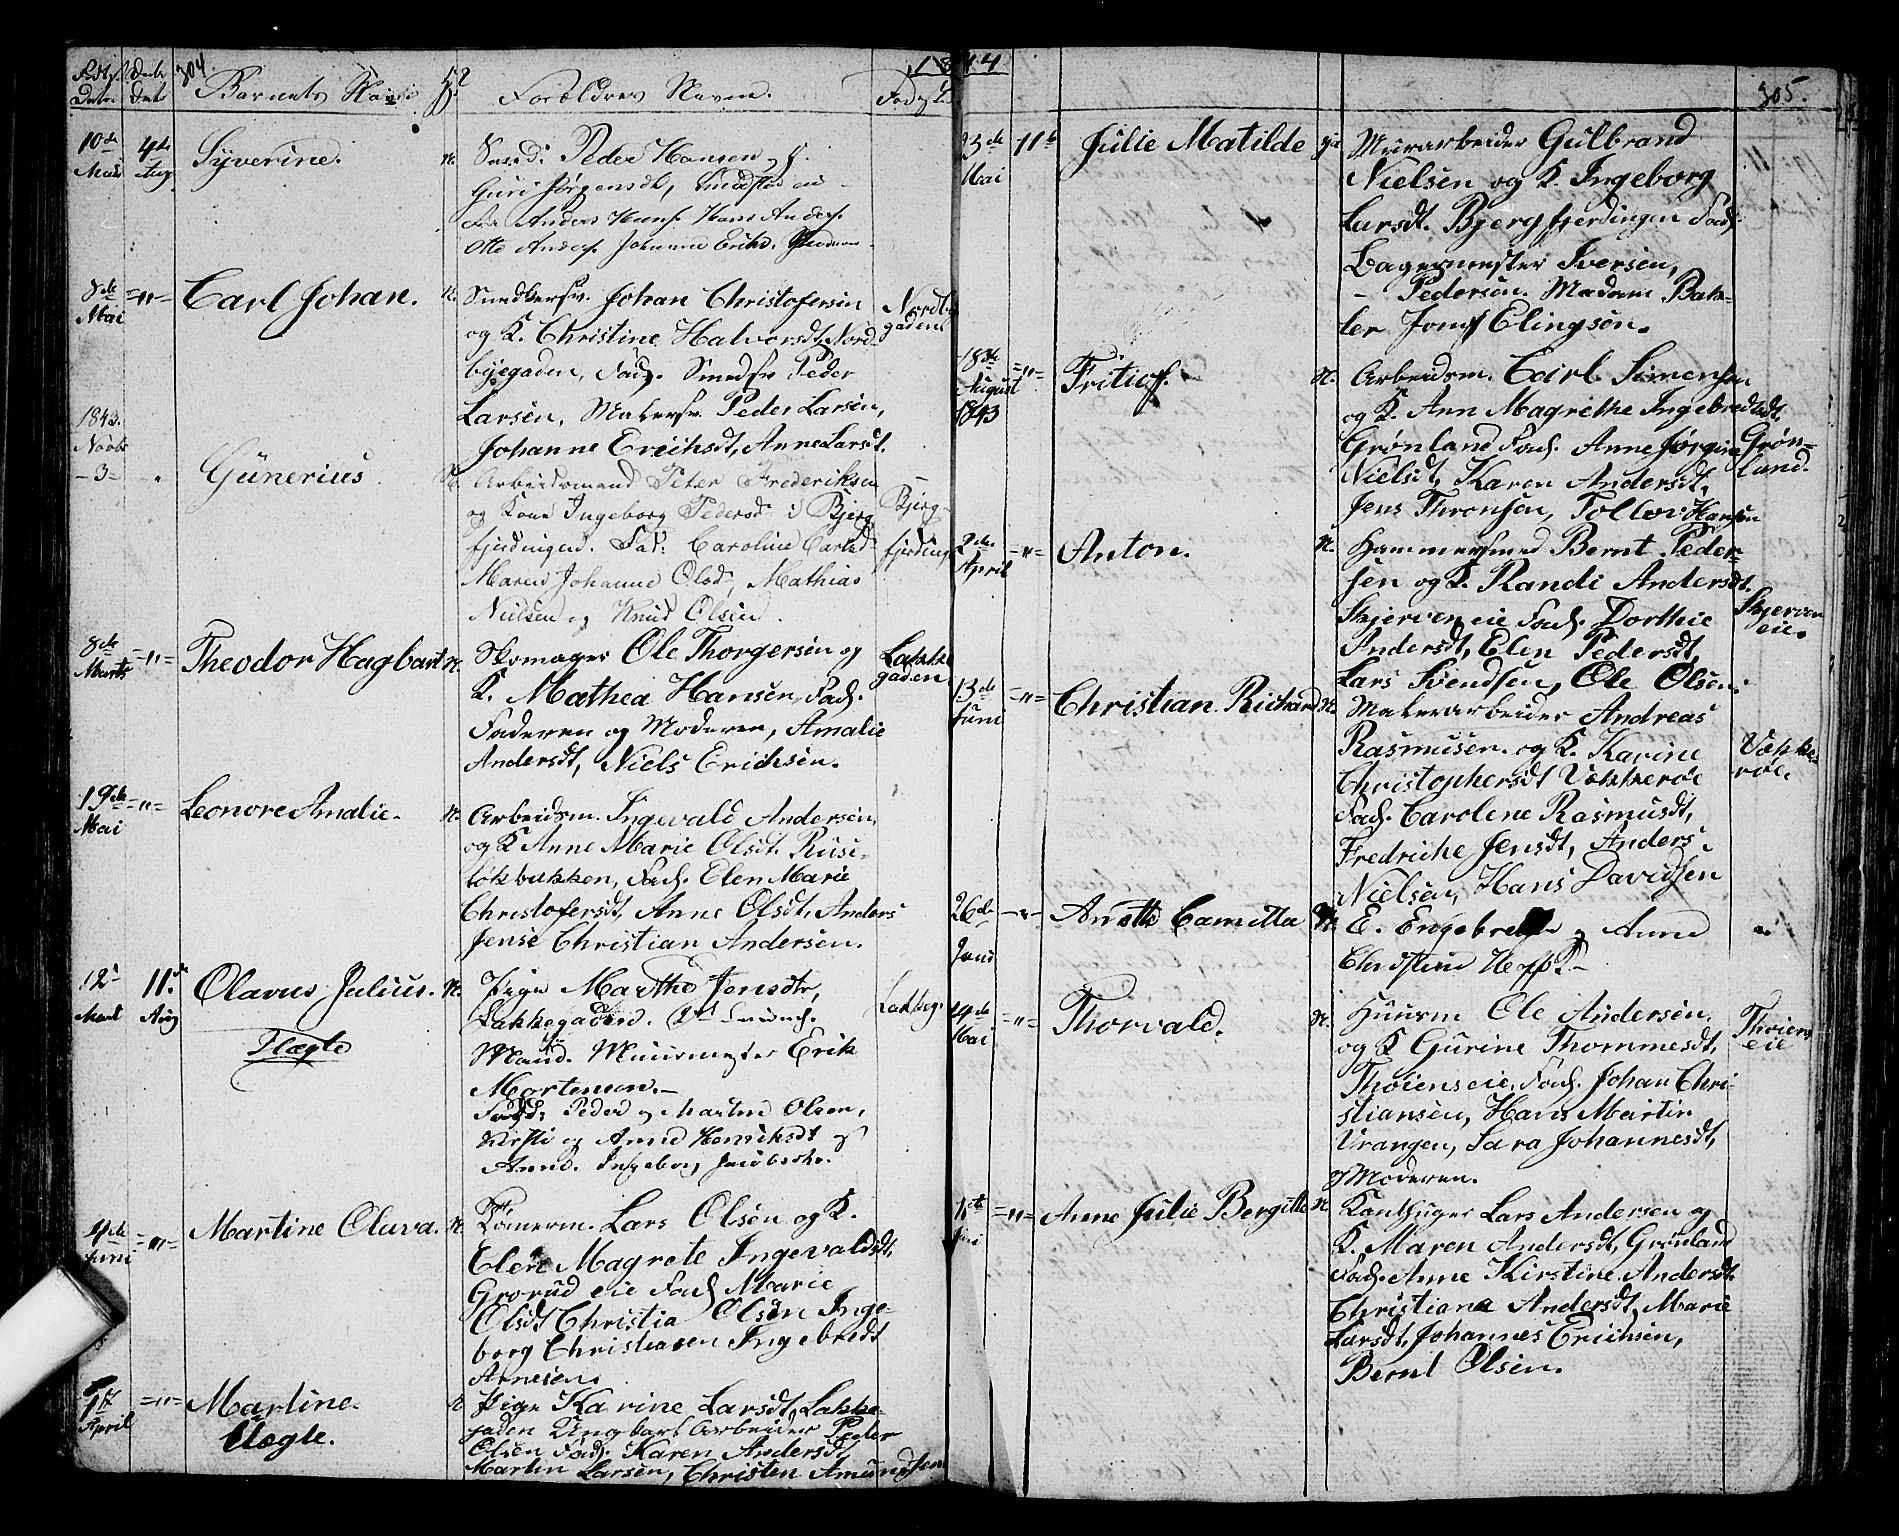 304.
1844
Barnets Navn
Forældres Navne.
10de Mai
4de Aug
Syverine.
n.
Smed. Peder Hansen og K.
Guri Jørgensdt,
Anders Hans. Hans Anders.
Ole Anders. Johanne Eriks.
8de Mai
="=
Carl Johan.
n.
Smedkersv. Johan Christofersen
og K. Christine Halvorsdt, Nord-
byegaden, Fad. Smedsv. Peder
Larsen, Malersv. Peder Larsen,
Johanne Erichsdt, Anne Larsdt.
Nordby
gaden
1843.
Novbr
-3-
Günerius
Arbeidsmand Peter Frederiksen
og Kone Ingeborg Pedersd i Bjerg
fjerdingen. Fad: Caroline Carlsd
Maren Johanne Olsd, Mathias
Nielsen og Knud Olsen.
Bjerg-
fjerding
8de Marts
="=
Theodor Hagbart
n.
Skomager Ole Thorgersen og
K. Mathea Hansen, Fad.
Faderen og Moderen, Amalie
Andersdt, Niels Erichsen.
Lakke
gaden
19de Mai
="=
Leonore Amalie.
n.
Arbeidsm. Ingevald Andersen,
og K Anne Marie Olsdt. Ruse-
løkbakken, Fad. Elen Marie
Christofersdt, Anne Olsdt, Anders
Jense Christian Andersen.
12
11.
Aug
Olavus Julius.
n.
Uægte
Pige Marthe Jonsdtr,
Lakkegaden.
Mand. Muurmester Erik
Mortensen.-
Fadd: Peder og Martin Olsen,
Kirsti og Anne Henrichsdt og
Anne Ingeborg Jacobsdtr.
Lakkeg.
4de Juni
="=
Martine Oluva.
n.
Tømerm. Lars Olsen og K.
Elen Magrete Ingevaldsdt,
Grorud eie Fad. Marie
Olsdt Christia Olsen Inge-
borg Christiasen Ingebredt
Arnesen.
April
="=
Martine.
Uægte.
Pige Karine Larsdt, Lakke-
gaden Ungkarl Arbeider Peder
Olsen Fad. Karen Andersdt
Martin Larsen, Christen Amundsen
305.
23de Mai
11te
Julie Matilde
Murarbeider Gulbrand
Nielsen og K. Ingeborg
Larsdt. Bjergfjerdingen Fad.
Bagermester Iversen,
- Pedersen. Madam Bak-
ler Jomf Elingsen.
18de
August
1843
="=
Fritiof.
n.
Arbeidsm. Carl Simensen
og K. Ann Magrethe Ingebredtsdt,
Grønland Fad. Anne Jørgine
Nielsdt, Karen Andersdt,
Jens Thronsen, Tollov Hansen
Grøn-
land.
2de April
="=
Anton.
n.
Hammersmed Bernt Peder-
sen og K. Randi Andersdt.
Skjerven eie Fad. Dorthie
Andersdt, Elen Pedersdt,
Lars Svendsen, Ole Olsen.
Skjerven
eie.
13de Juni
="=
Christian Richard
n.
Malerarbeider Andreas
Rasmusen. og K. Karine
Christophersdt Vækkerøe
Fad. Carolene Rasmusdt,
Fredriche Jensdt, Anders
Nielsen, Hans Davidsen
Vække-
røe.
26de Juni
="=
Anette Camilla
n.
E. Engebret og Anne
Christine
19de Mai
="=
Thorvald.
n.
Huusm Ole Andersen,
og K Gurine Thommesdt,
Thøiens eie, Fad. Johan Chri-
stiansen, Hans Martin
Vrangen, Sara Johannesdt,
og Moderen.
Thøiens
eie
="=
Anne Julie Bergitte
n.
Kanthuger Lars Andersen og
K. Maren Andersdt, Grønland
Fad. Anne Kirstine Andersdt.
Christiane Andersdt, Marie
Larsdt, Johannes Erichsen,
Bernt Olsen.